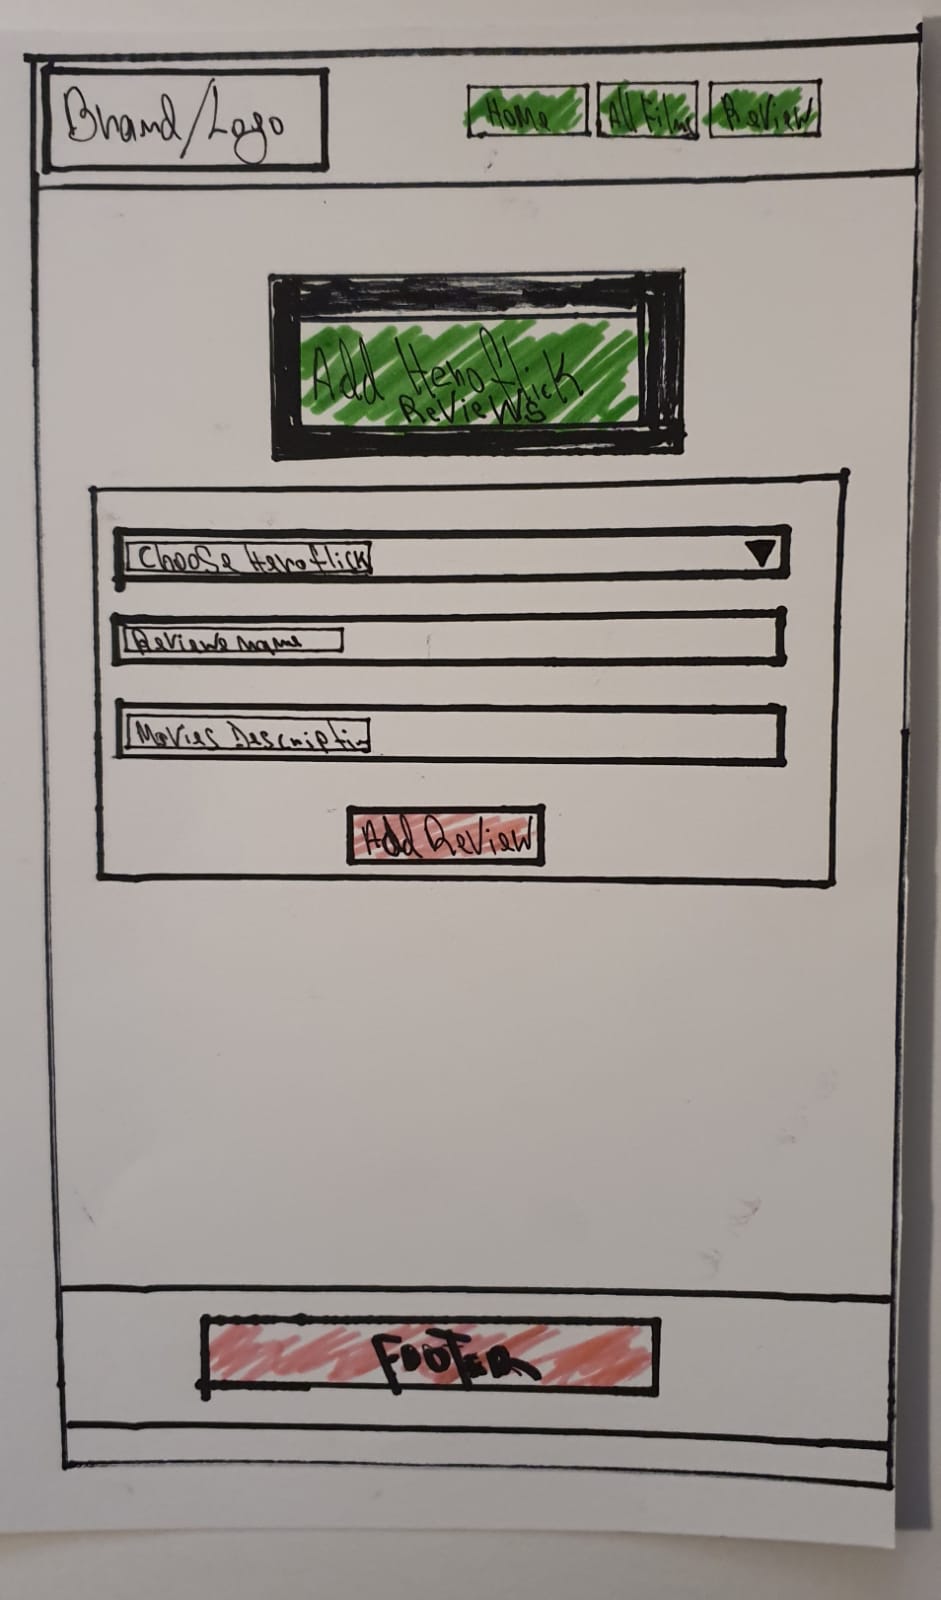 Brand/Logo
Home
All Films
Review
Add Heroflick
Reviews
Choose Heroflick
Reviews name
Movies Description
Add Review
FOOTER